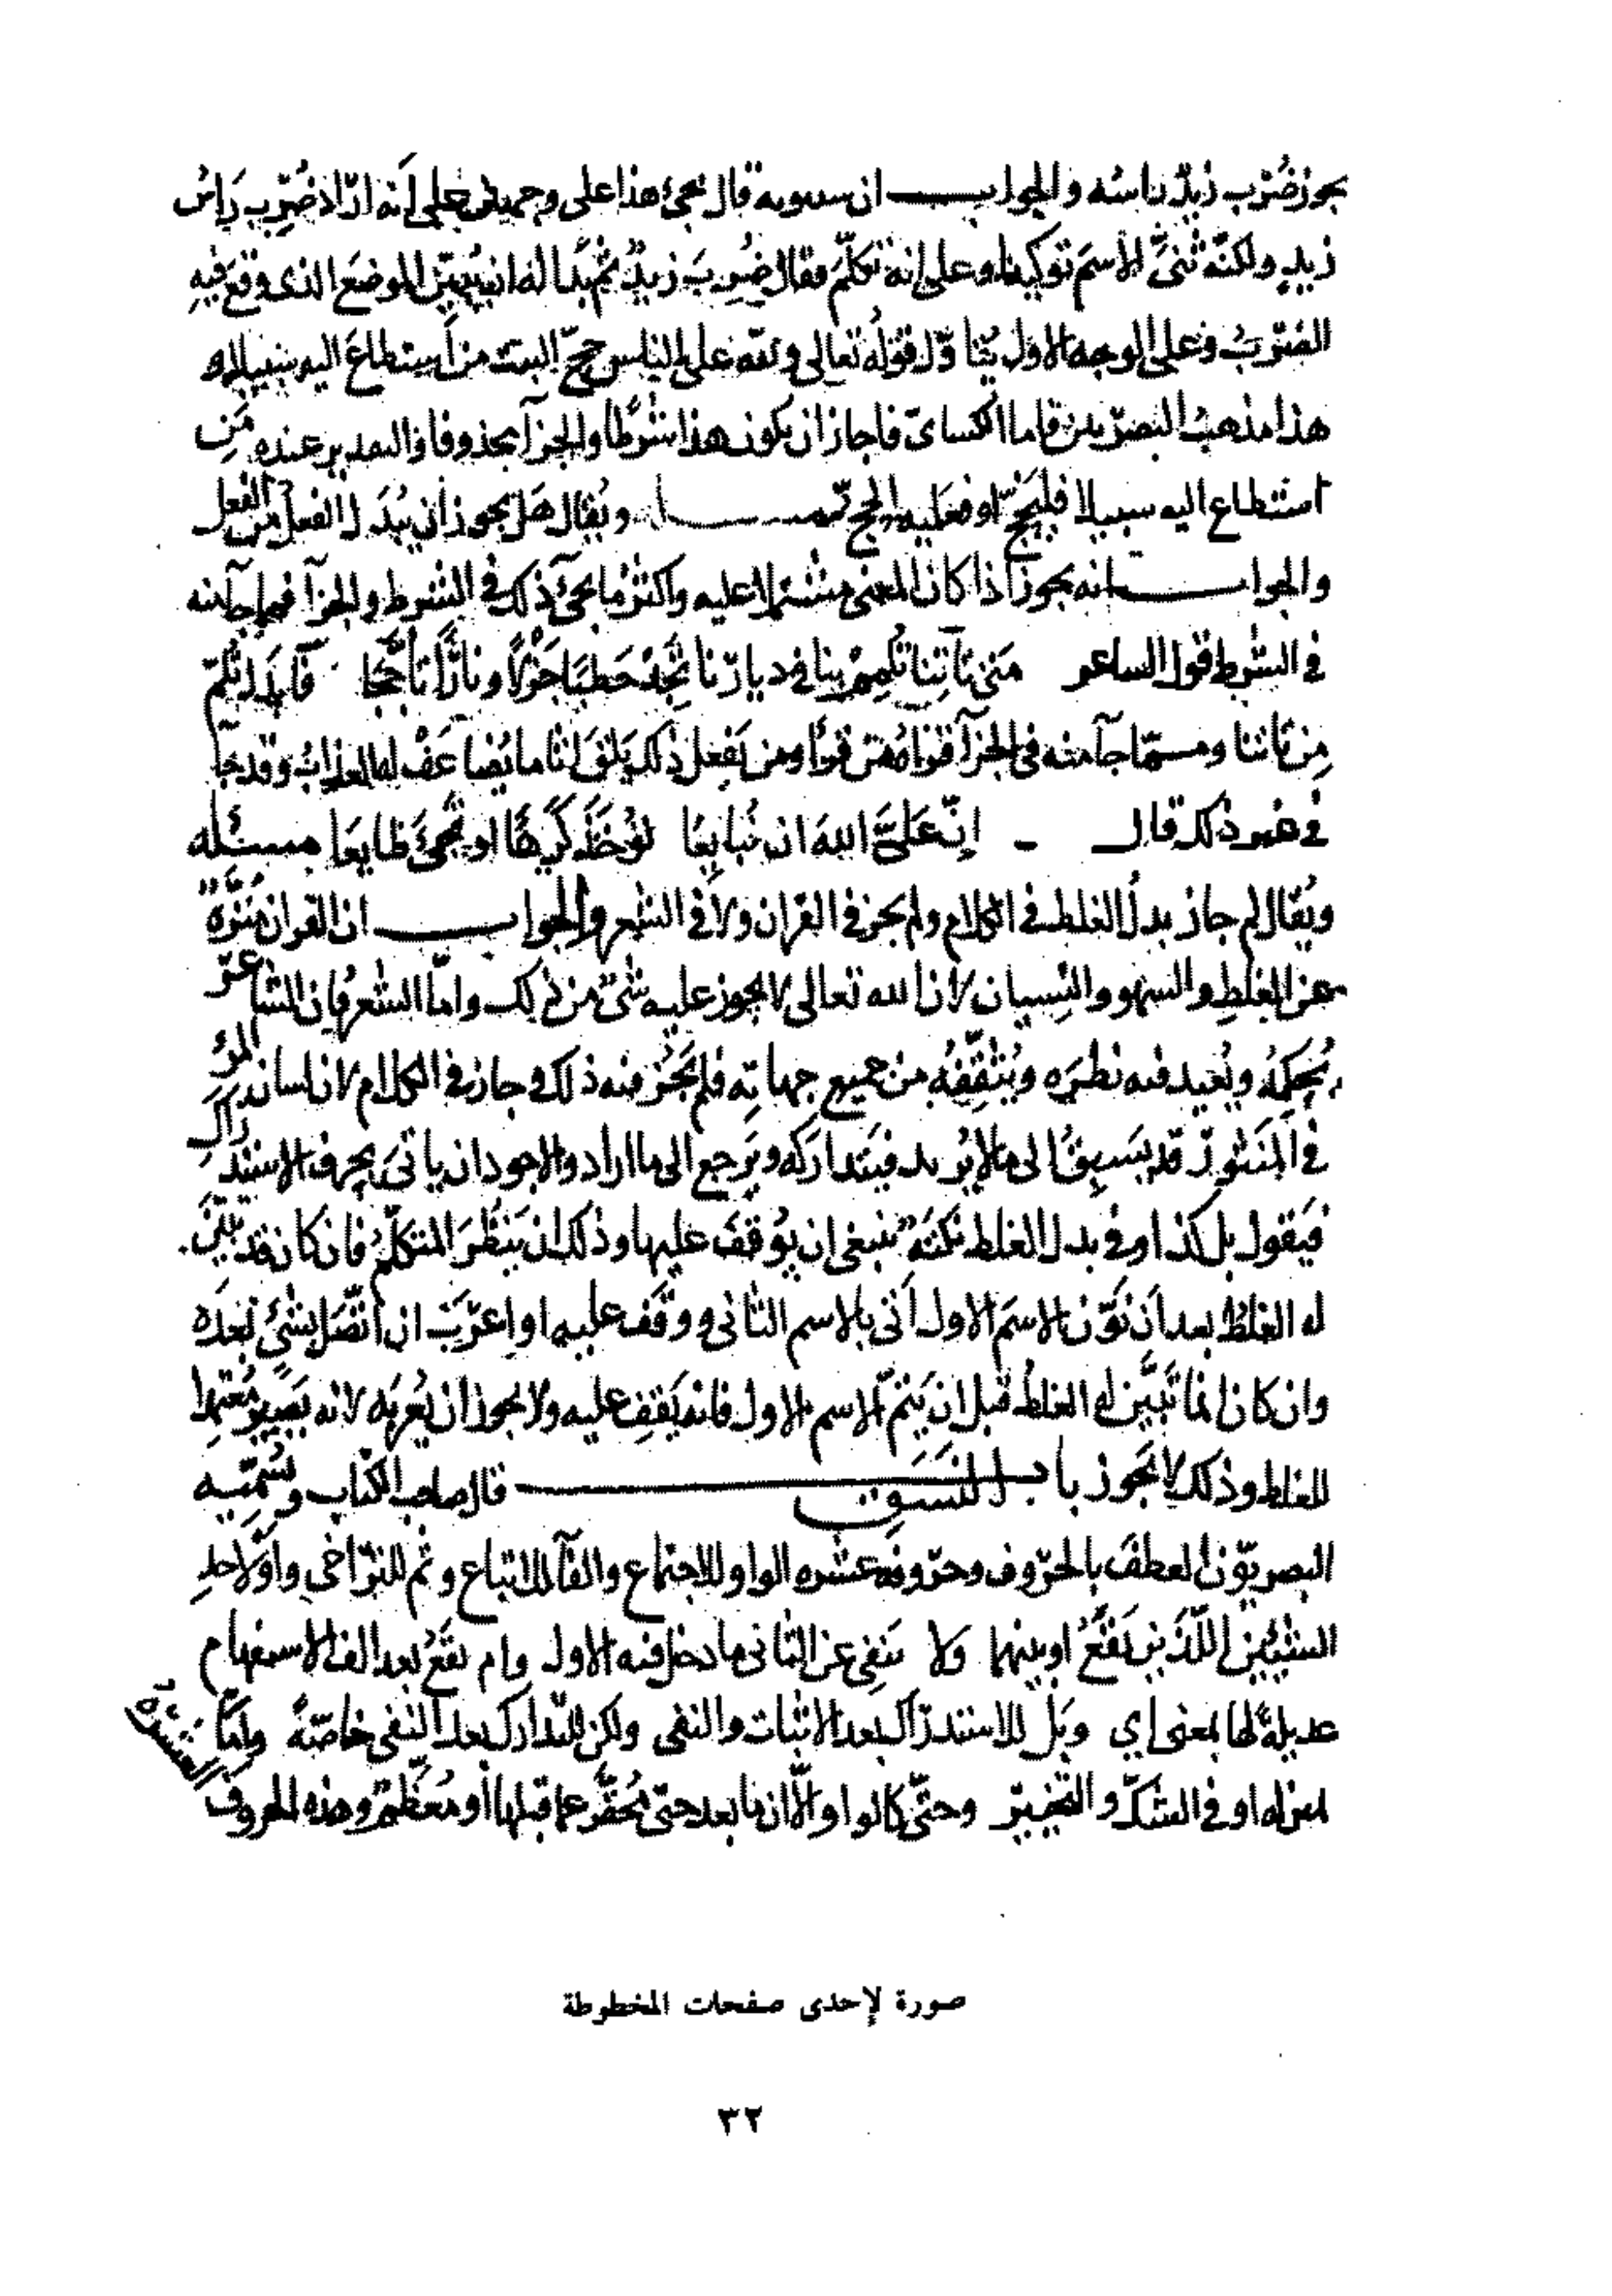 يجوز ضُرِب زيدٌ راسُه والجواب ان سيبويه قال يجئ هذا على وجهين على أنه اراد ضُرِب رَاسُ
زيدٍ ولكنّه ثنَّى الاسمَ توكيدا وعلى انه تكلّمَ فقال ضُرِبَ زيدٌ ثم بدا له ان يُبيّن الموضعَ الذى وقع فيهِ
الضربُ وعلى الوجه الاول يُتأوّل قولُه تعالى ولله على الناس حجّ البيت من استطاعَ اليه سبيلا
هذا مذهبُ البصريين فاما الكسائى فاجاز ان يكون هذا شرطًا والجزآ محذوفا والتقدير عنده مَنِ
استطاع اليه سبيلا فليَحُجّ او فعَليه الحج ويُقال هَل يجوز أن يُبدَل الفعل من الفعل
والجواب انه يجوز اذا كان المعنى مشتملا عليه واكثرُ ما يجئ ذلك فى الشرط والجزآ فمما جآ منه
فى الشرط قول الشاعر مَتى تاتِنا تُلمِمْ بنا فى ديارنا تَجِدْ حَطبًا جَزْلًا ونارًا تأجَّجَا فابدل تُلمّ
مِن تاتنا وممّا جآ منه فى الجزآ ومن يَفعل ذلك يَلقَ اثاما يُضاعَفْ له العذابُ وقد جآ
فى غير ذلك قال إنّ عَلَىَّ اللهَ ان تُبايِعَا تؤخَذَ كَرْهًا او تَجِئَ طايِعَا مسئله
ويُقال لم جاز بدلُ الغلط فى الكلام ولم يجز فى القرآن ولا فى الشعر والجواب ان القران مُنزَّهٌ
عن الغلطِ والسهو والنِسيان لان الله تعالى لا يجوز عليه شئ من ذلك واما الشعر فان الشاعر
يُحكِمُه ويُعيد فيه نظرَه ويُثقِّفُه من جميع جهاته فلم يَجُز فيه ذلك وجاز فى الكلام لان لسان المرؤ
فى المنثور قد يَسبِقُ الى ما لا يُريد فيَتداركه ويَرجع الى ما اراد والاجود ان ياتىَ بحرف الاستدراك
فيَقول بل كذا وفى بدل الغلط نكتَةٌ ينبغى ان يُوقَفَ عليها وذلك ان يَنظُرَ المتكلِّمُ فان كان قد تبيّن
له الغلطُ بعد أن نوّن الاسمَ الاول أتى بالاسم الثانى ووقَف عليه او اعرَبَ ان اتّصَل بشئ بَعدَه
وان كان انما تبَيَّن له الغلطُ قبل ان يَتِمّ الاسم الاول فانه يَقِف عليه ولا يجوز ان يُعربَه لانه يَصيرُ مُعتمِدا
للغلط وذلك لا يَجوز باب النسق قال صاحب الكتاب ويُسَمّيه
البصريّون العطفَ بالحروف وحروفه عشره الواو للاجتماع والفآ للاتباع وثم للتراخى واو لاحدِ
الشيئين اللذَينِ يَقَعُ او بينهما ولا تَنفِى عن الثانى ما دخل فيه الاول وام تقعُ بعد الف الاستفهام
عديلةً لها بمعنى اي وبَل للاستدراك بعد الاثبات والنفى ولكن للتدارك بعد النفى خاصّةً وامّا
بمنزله او فى الشكّ والتخيير وحتّى كالواو الّا ان ما بعد حتى مُحقَّر عما قبلها أو مُعظَّم وهذه الحروف
العشرة
صورة لإحدى صفحات المخطوطة
٣٢